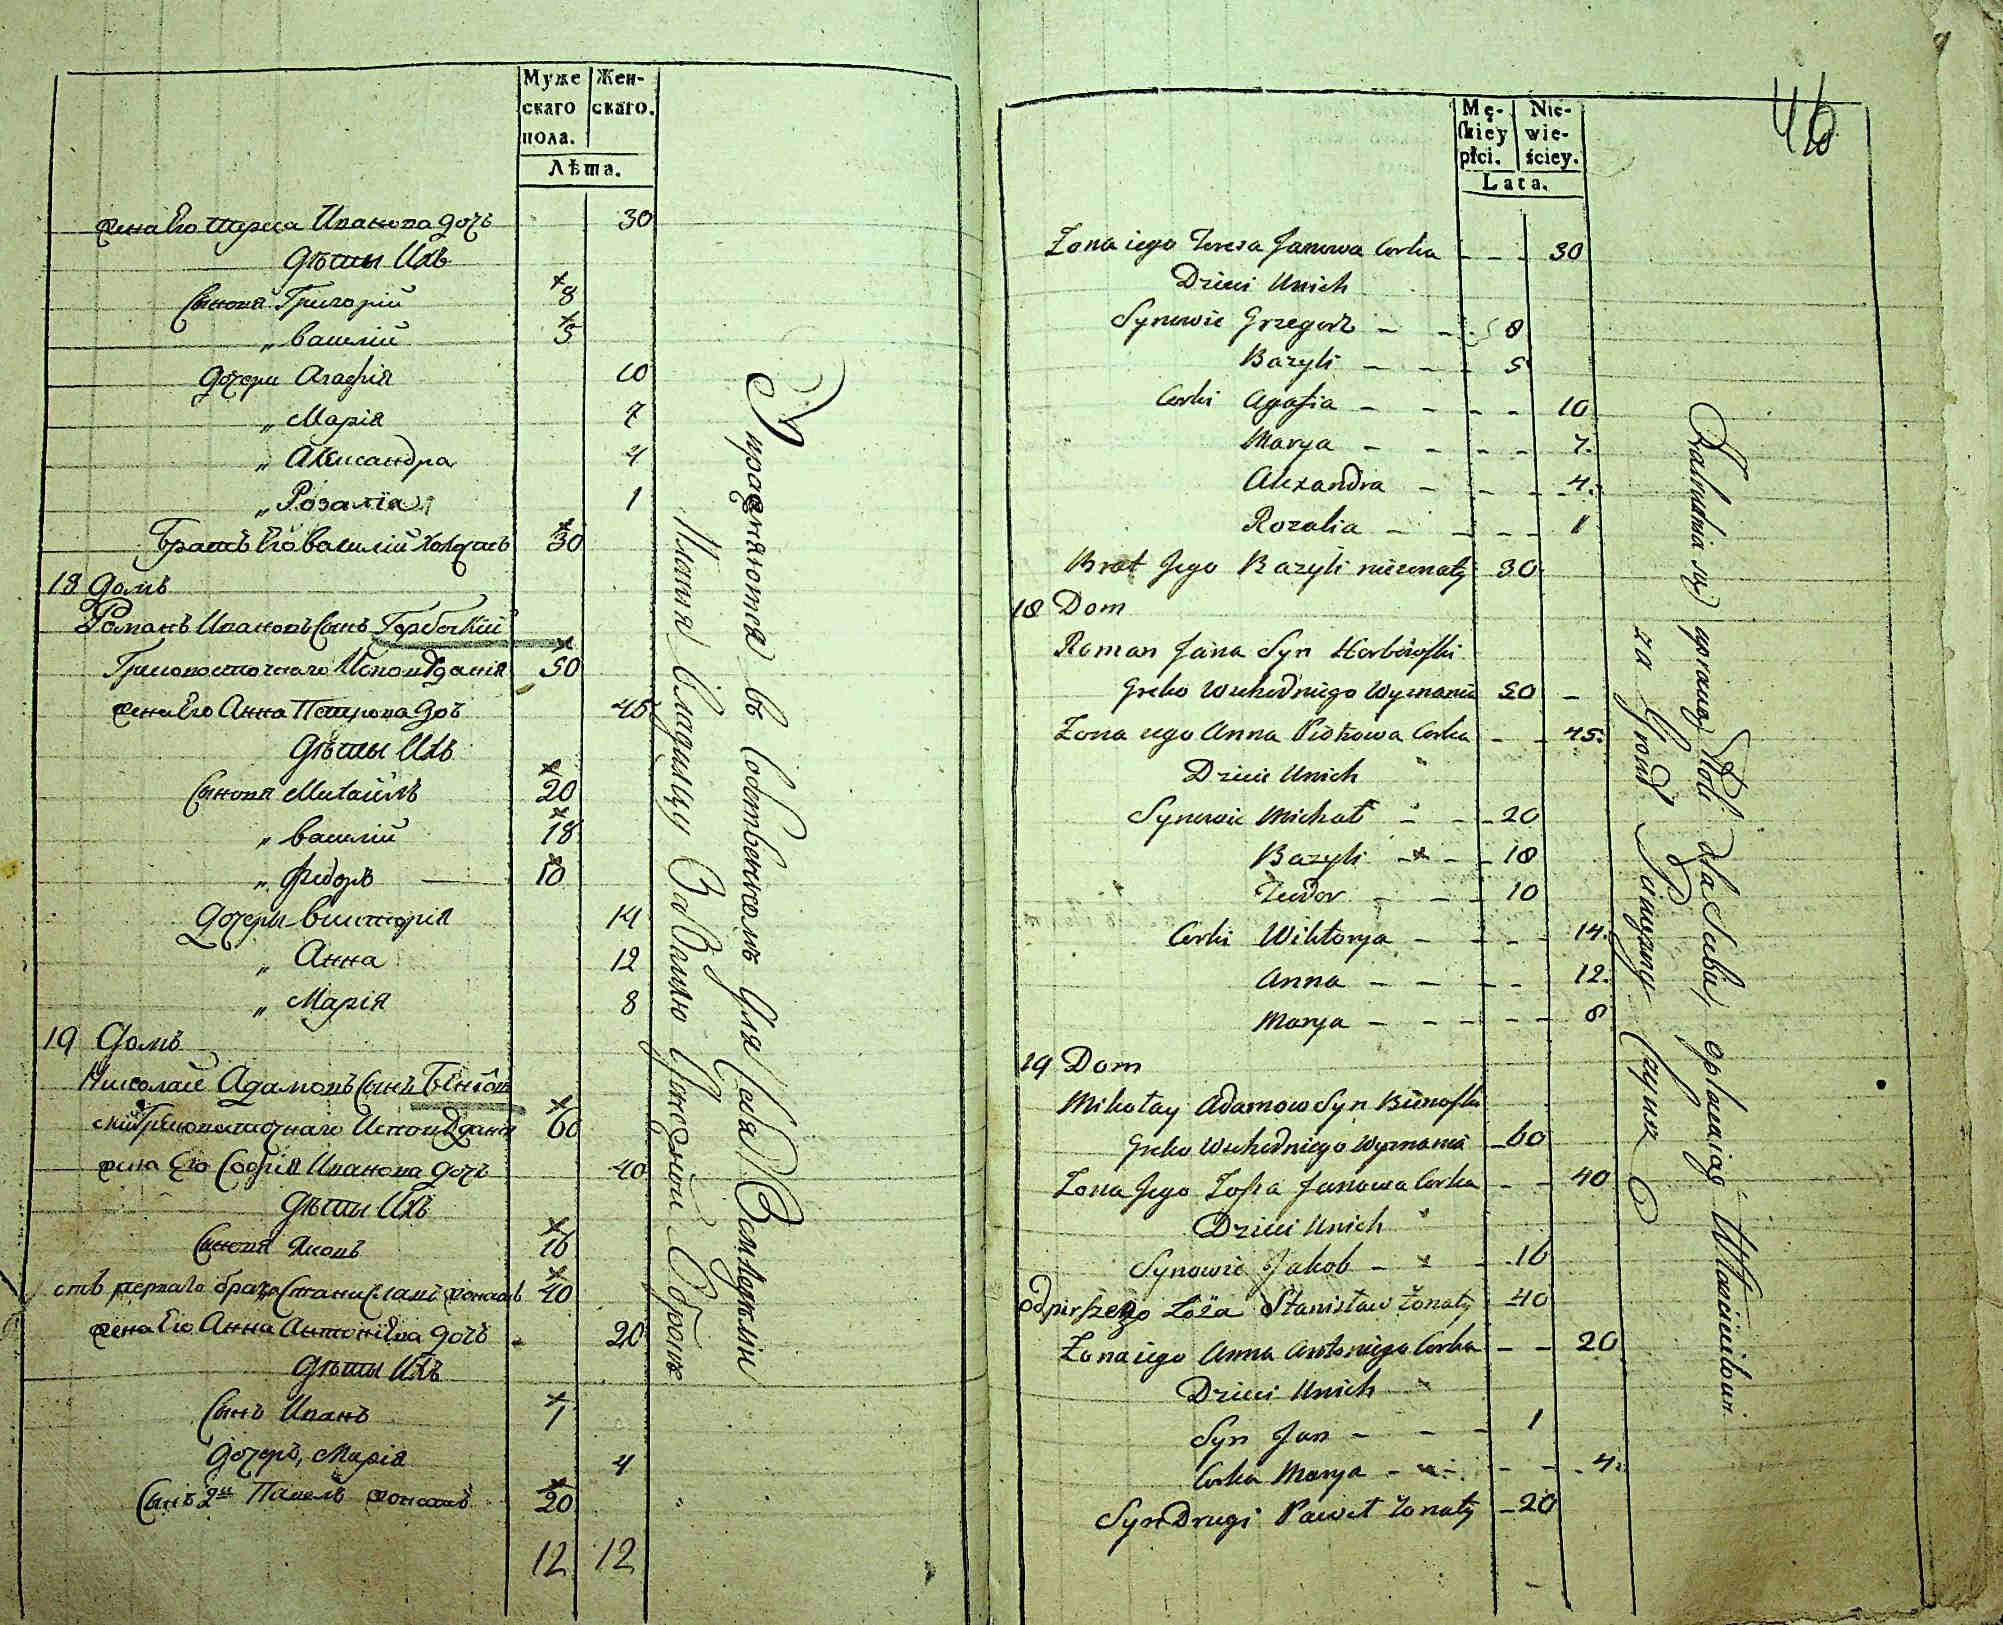 Муже
скаго
пола.
Жен-
скаго.
Лѣта.
жена Его Тереса Иванова дочь 30
Дѣти Ихъ
Сыновя Григорій 8
„ Василій 5
Дочери Агафія 10
„ Марія 7
„ Александра 4
„ Розалія 1
Братъ Его Василій холостъ 30
18 Домъ
Романъ Ивановъ Сынъ
Грековосточнаго Исповѣданія 50
жена Его Анна Петрова дочь 45
Дѣти Ихъ
Сыновя Михаилъ 20
„ Василій 18
„ Федоръ 10
Дочери Викторія 14
„ Анна 12
„ Марія 8
19 Домъ
Николай Адамовъ Сынъ Бѣнков
скій Грековосточнаго Исповѣданія 60
жена Его Софія Иванова дочь 40
Дѣти Ихъ
Сыновя Яковъ 16
отъ перваго брака Станиславъ женатъ 40
жена Его Анна Антонiева дочь 20
Дѣти Ихъ
Сынъ Иванъ 1
Дочерь, Марія 4
Сынъ 2й Павелъ женатъ 20
12 12
Упражняются въ Собственномъ для Себя Земледѣліи
Платя Владѣльцу За Землю Денежной Оброкъ
46
Mę-
skiey
płci.
Nie-
wie-
ściey.
Lata.
Zona iego Teresa Janowa Corka - - - 30
Dzieci Unich
Synowie Grzegorz - - 8
Bazyli - - - 5
Corki Agafia - - - - 10
Marya - - - - 7.
Alexandra - - - 4.
Rozalia - - - - 1
Brat Jego Bazyli niezonaty 30
18 Dom
Roman Jana Syn
Greko Wschodniego Wyznania 50 -
Zona iego Anna Piotrowa Corka - - 45.
Dzieci Unich
Synowie Michał - - - 20
Bazyli - - - 18
Teodor - - - 10
Corki Wiktorya - - - - 14.
Anna - - - - 12.
Marya - - - - - 8
19 Dom
Mikołay Adamow Syn
Greko Wschodniego Wyznania - 60
Zona Jego Zofia Janowa Corka - - 40
Dzieci Unich
Synowie Jakob - - - 16
od pierszego Łoża Stanisław Zonaty - 40
Zona iego Anna Antoniego Corka - - 20
Dzieci Unich
Syn Jan - - - 1
Corka Marya - - - - 4.
Syn Drugi Paweł Zonaty - 20
Zatrudnia się uprawą Roli dla Siebie, opłacaiąc Właścicielowi
za Grunt Pieniężny Czynsz